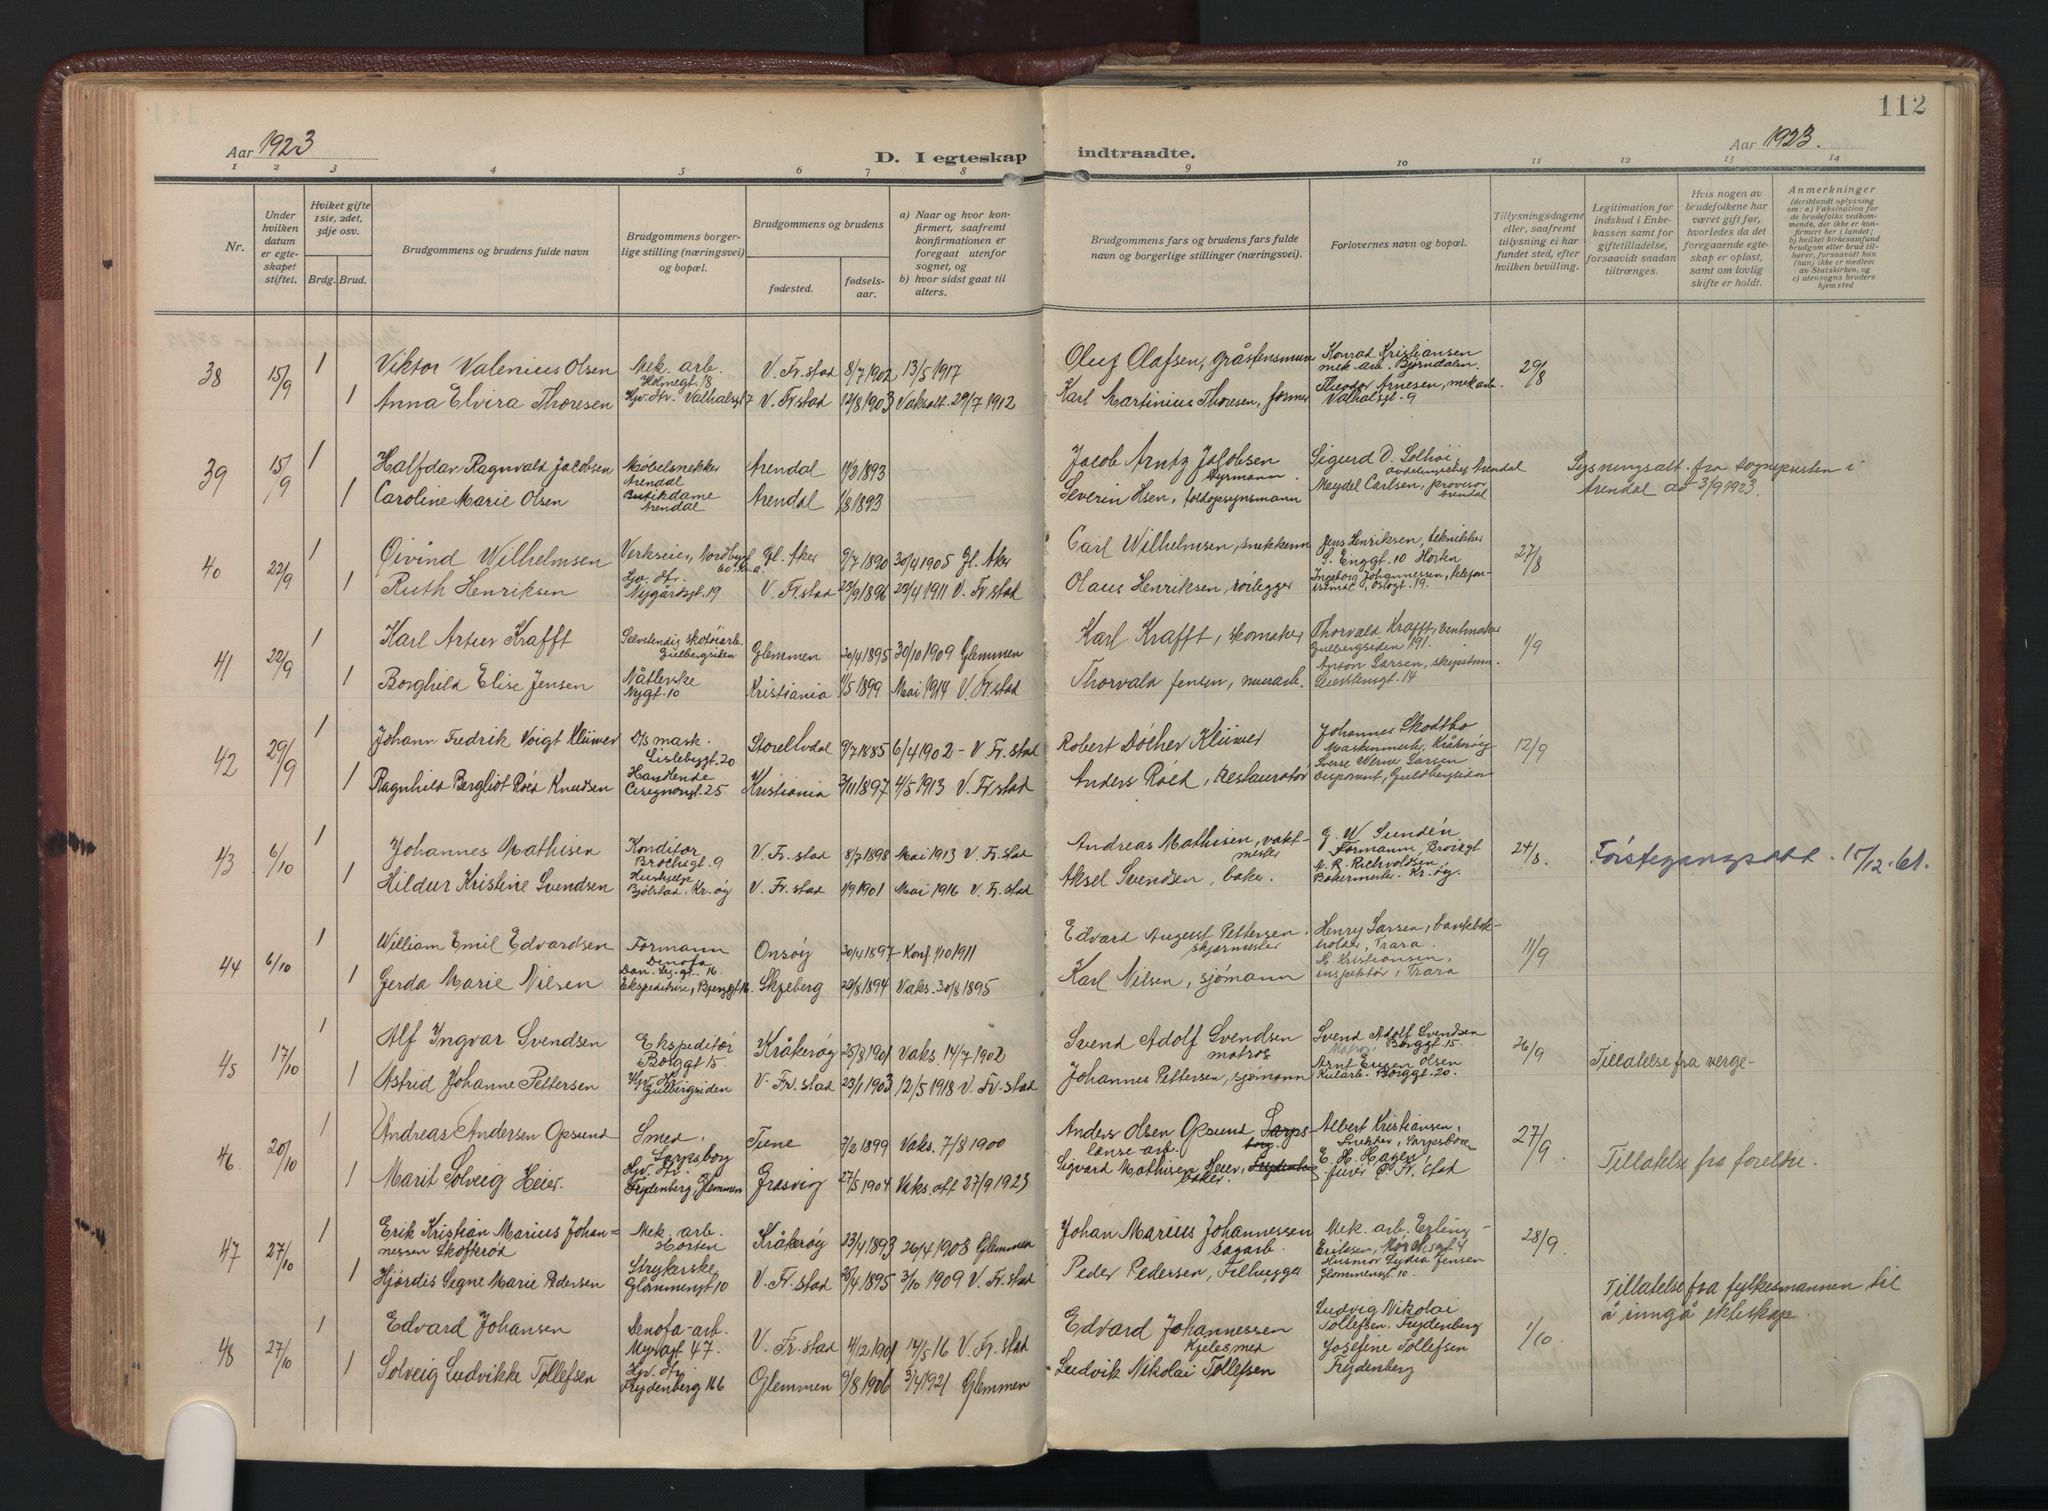 112
Aar 1923
D. I egteskap indtraadte.
Aar 1923.
1 2 3 4 5 6 7 8 9 10 11 12 13 14
Nr.
Under hvilken datum er egteskapet stiftet.
Hvilket gifte 1ste, 2det, 3dje osv.
Brdg. Brud.
Brudgommens og brudens fulde navn
Brudgommens borgerlige stilling (næringsvei) og bopæl.
Brudgommens og brudens
fødested.
fødselsaar.
a) Naar og hvor konfirmert, saafremt konfirmationen er foregaat utenfor sognet, og
b) hvor sidst gaat til alters.
Brudgommens fars og brudens fars fulde navn og borgerlige stillinger (næringsvei).
Forlovernes navn og bopæl.
Tillysningsdagene eller, saafremt tillysning ei har fundet sted, efter hvilken bevilling.
Legitimation for indskud i Enkekassen samt for giftetilladelse, forsaavidt saadan tiltrænges.
Hvis nogen av brudefolkene har været gift før, hvorledes da det foregaaende egteskap er opløst, samt om lovlig skifte er holdt.
Anmerkninger
(deriblandt oplysning om: a) Vaksination for de brudefolks vedkommende, der ikke er konfirmert her i landet; b) hvilket kirkesamfund brudgom eller brud tilhører, forsaavidt han (hun) ikke er medlem av Statskirken, og c) utensogns bruders hjemsted
38 15/9 1 Viktor Valenius Olsen Mek. arb. Holmegt. 18 V. Fr.stad 8/7 1902 13/5 1917 Oluf Olafsen, gråstensmurer Konrad Kristiansen mek arb. Bjørndalen. 29/8
1 Anna Elvira Thoresen Hjv. dtr. Valhalsgt 7 V. Fr.stad 12/8 1903 Vaksatt. 29/7 1912 Karl Martinius Thoresen, former Theodor Arnesen, mek arb. Valhalsgt. 9
39 15/9 1 Halfdan Ragnvald Jacobsen Møbelsnekker Arendal Arendal 11/2 1893 Jacob Arntz Jacobsen Styrmann. Sigurd D. Solhøi, Arendal Lysningsatt. fra sognepresten i Arendal av 3/9 1923.
1 Caroline Marie Olsen Butikdame Arendal Arendal 1/8 1893 Severin Olsen, Meydel Carlsen, provisor Arendal
40 22/9 1 Øivind Wilhelmsen Verkseier, Gl. Aker 9/7 1890 30/4 1905 Gl. Aker Carl Wilhelmsen, snekkerm Jens Henriksen, tekniker S. Enggt. 10 Horten 27/8
1 Ruth Henriksen Hjv. dtr. Nygårdsgt. 19 V. Fr.stad 23/9 1896 23/4 1911 V. Fr.stad Olaus Henriksen, rørlegger Ingeborg Johannessen, Oslogt. 19.
41 22/9 1 Karl Artur Krafft Selvstendig skotøiarb. Gulbergsiden Glemmen 20/4 1895 30/10 1909 Glemmen Karl Krafft, skomaker Thorvald Krafft, Gulbergsiden 191. 1/9
1 Borghild Elise Jensen Nåtlerske Nygt. 10 Kristiania 1/5 1899 Mai 1914 V. Fr.stad Thorvald Jensen, murarb. Anton Larsen,
42 29/9 1 Johann Fredrik Voigt Klüwer D/s mask. Lislebygt. 20 Storelvdal 9/7 1885 6/4 1902 - V. Fr.stad Robert Döcher Klüwer Johannes Skodtbo Maskinmester, Kråkerøy 12/9
1 Ragnhild Bergliot Røed Knudsen Handlende Cicignonsgt. 25 Kristiania 3/11 1897 4/5 1913 V. Fr.stad Anders Røed, Restauratør Sverre Werner Larsen Disponent, Guldbergsiden
43 6/10 1 Johannes Mathisen Konditor Brochsgt. 9 V. Fr.stad 8/7 1898 Mai 1913 V. Fr.stad Andreas Mathisen, vaktmester G. W. Sundén Formann, 24/8. Førstegangsatt. 15/12.61.
1 Hildur Kristine Svendsen Hushjelp Bjølstad, Kr.øy V. Fr.stad 1/9 1901 Mai 1916 V. Fr.stad Aksel Svendsen, baker. Bakermester. Kr.øy.
44 6/10 1 William Emil Edvardsen Formann Denofa Dan. Leg. gt. 16. Onsøy 30/4 1897 Konf 1/10 1911 Edvard August Pettersen. skjærmester Henry Larsen, bankbokholder, Trara. 11/9
1 Gerda Marie Nilsen Ekspeditrise, Bjerggt 16. Skjeberg 23/8 1894 Vaks. 30/8 1895 Karl Nilsen, sjømann H. Kristiansen, inspektør, Trara
45 17/10 1 Alf Yngvar Svendsen Ekspeditør Borggt 15. Kråkerøy 25/8 1901 Vaks. 14/7 1902 Svend Adolf Svendsen matros Svend Adolf Svendsen Matros, Borggt. 15. 26/9 Tillatelse fra verge-
1 Astrid Johanne Pettersen Gulbergsiden V. Fr.stad 23/1 1903 12/5 1918 V. Fr.stad Johannes Pettersen, sjømann Arnt Eugen Olsen Kularb. Borggt. 20.
46. 20/10 1 Andreas Andersen Opsund Smed, Sarpsborg Tune 7/2 1899 Vaks. 7/8 1900 Anders Olsen Opsund Sarpsborg lense arb. Albert Kristiansen, Snekker, Sarpsborg 27/9. Tillatelse fra foreldre.
1 Marit Solveig Heier. Hjv. dtr. Frydenberg Glemmen Gressvig 27/5 1904 Vaks. att 27/9 1923 Sigvard Mathisen Heier, baker. E. H. Hagen, Fr.stad
47 27/10 1 Erik Kristian Marius Johannessen Skofterød Mek. arb. Horten Kråkerøy 23/4 1893 26/4 1908 Glemmen Johan Marius Johannessen sagarb. Mek. arb. Erling Eriksen, 28/9.
1 Hjørdis Signe Marie Pedersen Strykerske Glommengt 10 V. Fr.stad 25/4 1895 3/10 1909 V. Fr.stad Peder Pedersen, Filhugger Husmor Lydia Jensen Glommengt. 10.
48 27/10 1 Edvard Johansen Denofa-arb. Myragt 47. V. Fr.stad 14/2 1901 14/5 16 V. Fr.stad Edvard Johannessen Kjelesmed Ludvig Nikolai Tollefsen, Frydenberg 1/10 Tillatelse fra fylkesmannen til å inngå ekteskap.
1 Solveig Ludvikke Tollefsen Hjv. dtr. Frydenberg 166 Glemmen 9/8 1906 3/4 1921 Glemmen Ludvik Nikolai Tollefsen Josefine Tollefsen Frydenberg